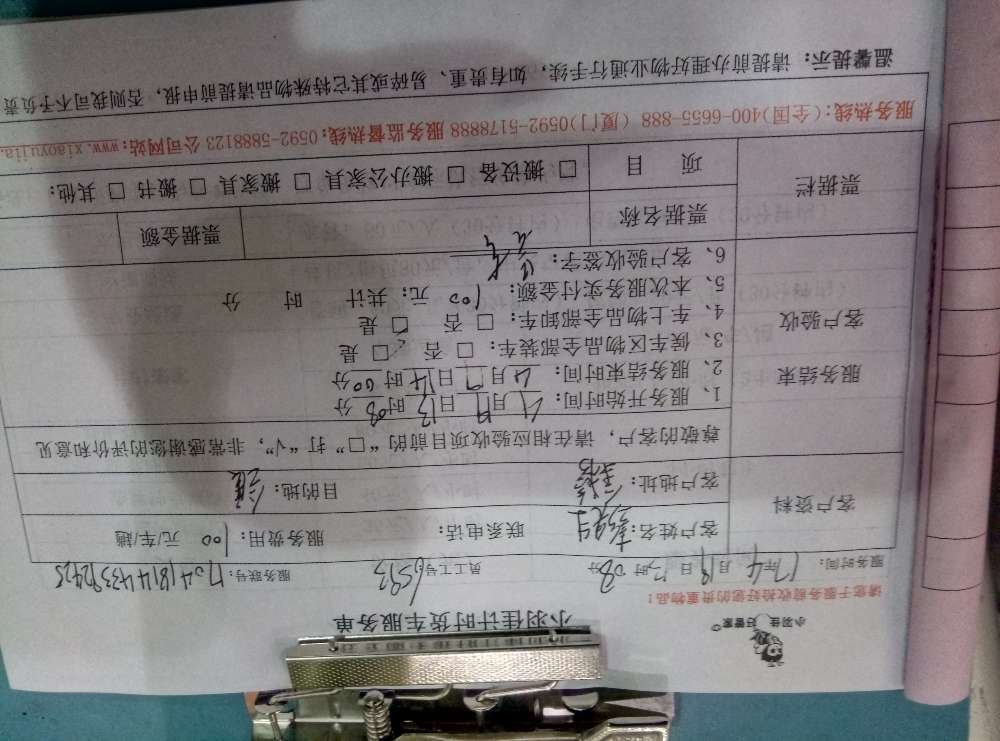 小羽佳 好管家
小羽佳计时货车服务单
请您于服务前收拾好您的贵重物品！
服务时间：17年4月19日13时08分 员工工号：6593 服务账号：
客户资料
客户姓名：彭先生 联系电话： 服务费用：100 元/车/趟
客户地址： 目的地：
尊敬的客户，请在相应验收项目前的“□”打“√”，非常感谢您的评价和意见
服务结束
客户验收
1、服务开始时间：4月19日13时08分
2、服务结束时间：4月19日14时00分
3、候车区物品全部装车：□ 否 □ 是
4、车上物品全部卸车：□ 否 □ 是
5、本次服务实付金额：100 元；共计 时 分
6、客户验收签字：
票据栏
票据名称 票据金额
项 目 □ 搬设备 □ 搬办公家具 □ 搬家具 □ 搬书 □ 其他：
服务热线：(全国)400-6655-888 (厦门)0592-5178888 服务监督热线：0592-5888123 公司网站：www.xiaoyujia.
温馨提示：请提前办理好物业通行手续，如有贵重、易碎或其它特殊物品请提前申报，否则我司不予负责